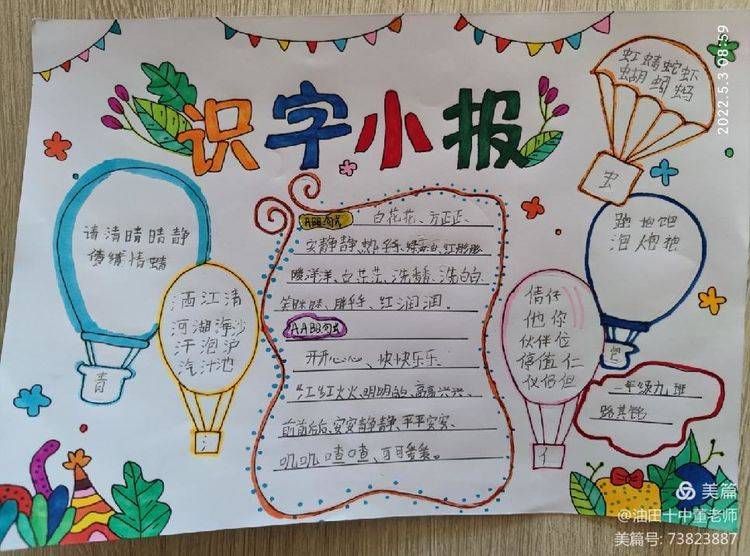 识字小报
2022.5.3 08:59
虹蜻蛇虾
蝴蚂
虫
请清晴睛静
情蜻
青
洒江清
河湖海沙
汗泡沪
汽汁池
氵
ABB
白花花、方正正、
安静静、红彤彤
暖洋洋、白茫茫、洗白白
笑眯眯、胖乎乎、红润润。
AABB
开开心心、快快乐乐、
红红火火、明明白白、高高兴兴、
前前后后、安安静静、平平安安、
叽叽喳喳、可可爱爱。
倩休
他你
伙伴位
停值仁
仪侣但
亻
跑抱饱
泡炮袍
包
一年级九班
美篇
@油田十中董老师
美篇号: 73823887